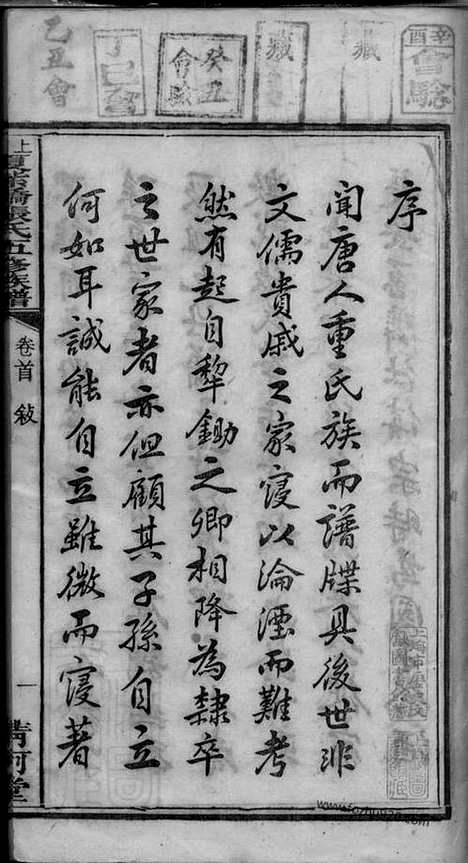 辛酉會驗
藏
藏
癸丑會驗
丁巳會
乙丑會
序
聞唐人重氏族而譜牒具後世非
文儒貴戚之家寖以淪湮而難考
然有起自犂鋤之卿相降為隸卒
之世家者亦但顧其子孫自立
何如耳誠能自立雖微而寖著
張氏五修族譜
卷首
敍
一
清河堂